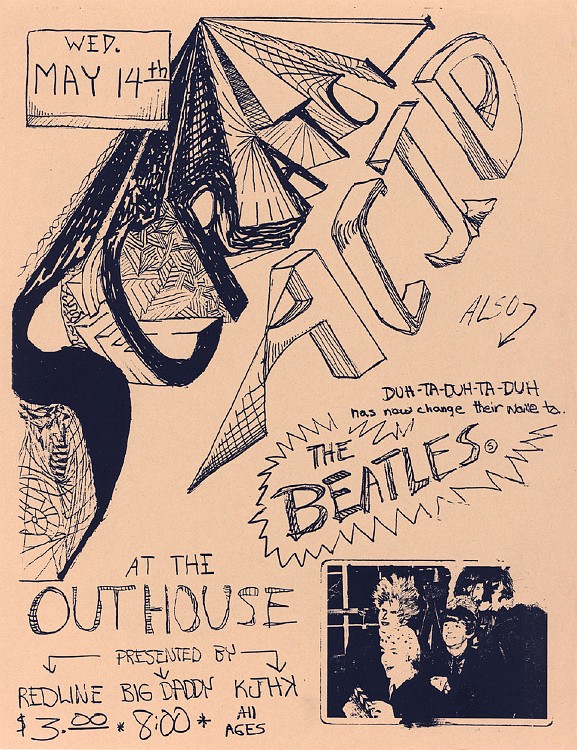 WED.
MAY 14th
SCRATCH
ACID
ALSO
DUH-TA-DUH-TA-DUH
has now change their name to..
THE
BEATLES
AT THE
OUTHOUSE
PRESENTED BY
REDLINE BIG DADDY KJHK
$3.00 * 8:00 * All
AGES